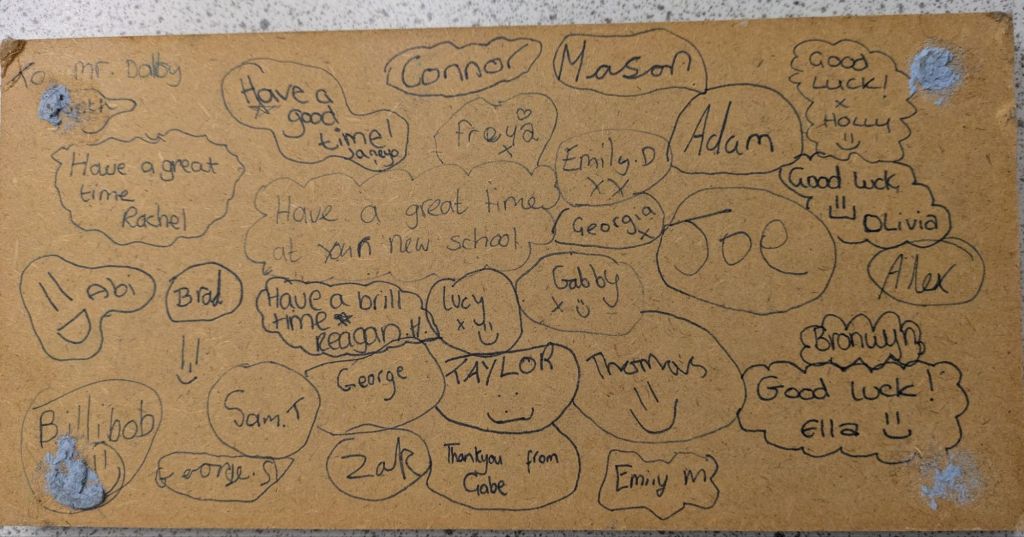 To Mr. Dalby
Have a
good
time!
Connor
Mason
Good
Luck!
x
Holly
freya
x
Emily.D
xx
Adam
Have a great
time
Rachel
Have a great time
at your new school
Georgia
x
Joe
Good luck
Olivia
Alex
Abi
Brad
Have a brill
time
Reagan.H.
Lucy
x
Gabby
x
Bronwyn
George
TAYLOR
Thomas
Good luck!
Ella
Billibob
Sam.T
George.S
Zak
Thankyou from
Gabe
Emily M